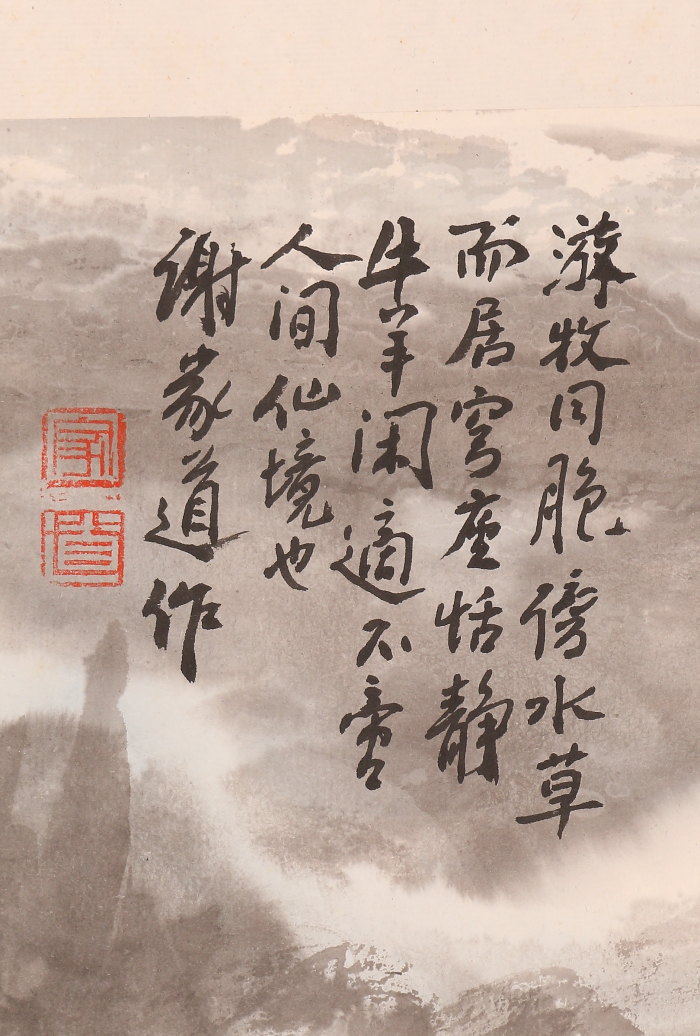 游牧同胞傍水草
而居穹座恬静
牛羊闲适不啻
人间仙境也
谢家道作
家
道